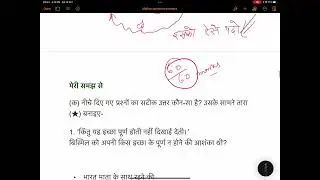 इसको ऐसे पढ़ो!!
60
60
मेरी समझ से
(क) नीचे दिए गए प्रश्नों का सटीक उत्तर कौन-सा है? उसके सामने तारा
(★) बनाइए-
1. "किंतु यह इच्छा पूर्ण होती नहीं दिखाई देती।"
बिस्मिल को अपनी किस इच्छा के पूर्ण न होने की आशंका थी?
• भारत माता के साथ रहने की